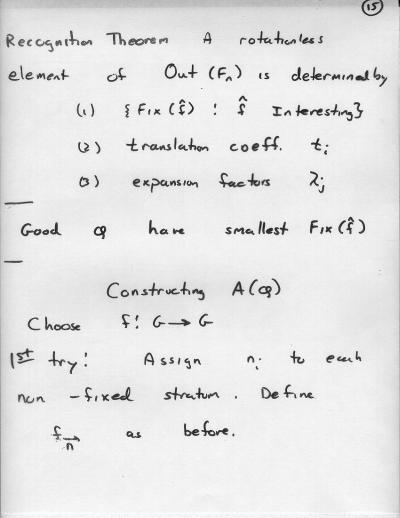 15
Recognition Theorem A rotationless
element of Out (Fₙ) is determined by
(1) { Fix (f̂) : f̂ Interesting}
(2) translation coeff. tᵢ
(3) expansion factors λⱼ
Good φ have smallest Fix (f̂)
Constructing A(φ)
Choose f: G → G
1st try: Assign nᵢ to each
non-fixed stratum. Define
f_n⃗ as before.